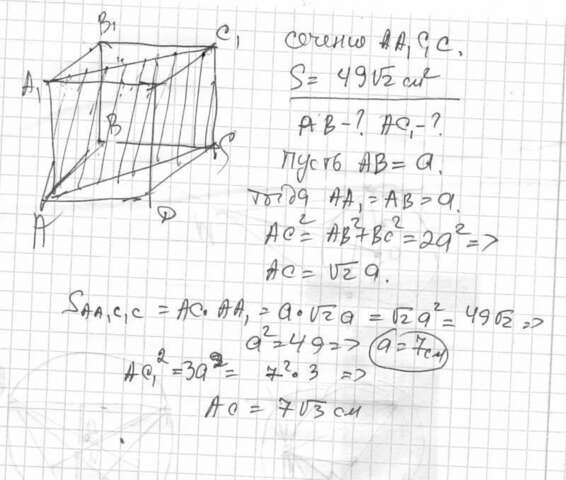 B₁
C₁
A₁
B
C
A
D
сечение AA₁C₁C.
S = 49√2 см²
AB - ? AC₁ - ?
Пусть AB = a.
тогда AA₁ = AB = a.
AC² = AB² + BC² = 2a² =>
AC = √2 a.
S AA₁C₁C = AC · AA₁ = a · √2 a = √2 a² = 49√2 =>
a² = 49 => a = 7 см
AC₁² = 3a² = 7² · 3 =>
AC = 7√3 см